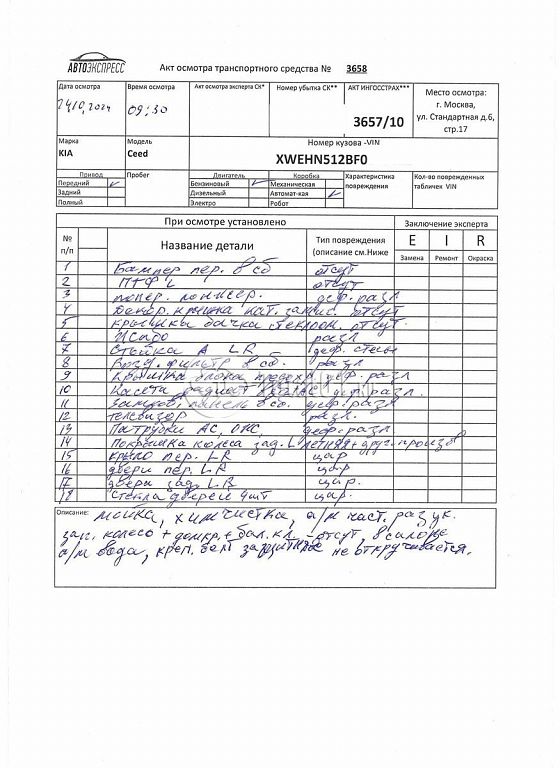 АВТОЭКСПРЕСС
Акт осмотра транспортного средства № 3658
Дата осмотра Время осмотра Акт осмотра эксперта СК* Номер убытка СК** АКТ ИНГОССТРАХ*** Место осмотра:
24.10.2024 09:30 3657/10 г. Москва,
ул. Стандартная д.6,
стр.17
Марка Модель Номер кузова -VIN
KIA Ceed XWEHN512BF0
Привод Пробег Двигатель Коробка Характеристика повреждения Кол-во поврежденных табличек VIN
Передний ✓ Бензиновый ✓ Механическая
Задний Дизельный Автомат-кая ✓
Полный Электро Робот
При осмотре установлено Заключение эксперта
№ п/п Название детали Тип повреждения (описание см.Ниже E I R
Замена Ремонт Окраска
1 Бампер пер. в сб отсут
2 ПТФ L отсут
3 попер. лонжер. деф. разл
4 Декор. крышка кат. зажиг. отсут
5 крышки бачка стеклом. отсут.
6 разл
7 Стойка A LR деф.
8 Возд. фильтр в сб. разл
9 Крышка блока предохр деф. разл
10 Касета радиат. деф. разл.
11 панель в сб. деф. разл
12 телевизор разл.
13 Патрубки АС, деф. разл
14 Покрышка колеса зад. L летняя + друг. произв
15 крыло пер. LR цар
16 двери пер. LR цар
17 двери зад. LR цар.
18 Стекла дверей 4шт цар.
Описание: мойка, химчистка, а/м част. раз ук.
зап. колесо + домкр. + бал. кл. - отсут, в салоне
а/м вода, креп. бол защитное не откручивается.